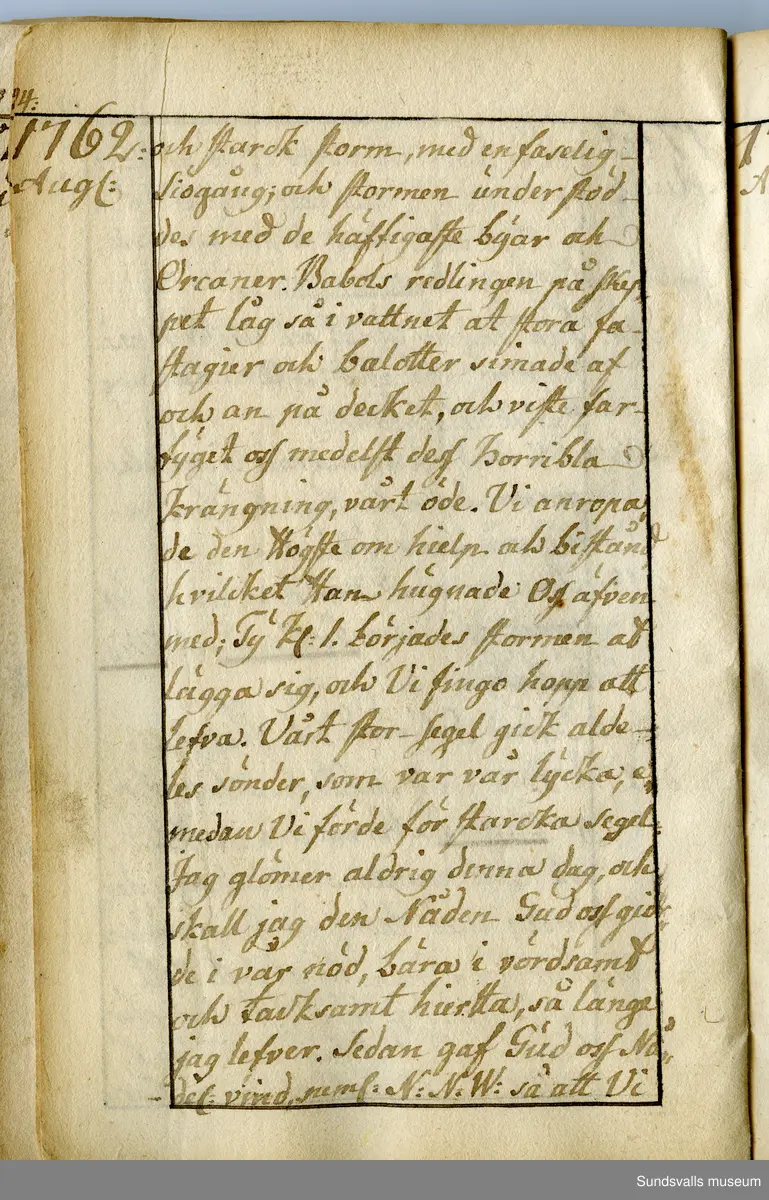 94:
1762: och starck storm, med en faselig
Augs: siögång; och stormen understöd-
des med de häftigaste byar och
Orcaner. Babols redlingen på skep,
pet låg så i vattnet at stora fa-
stagier och balotter simade af
och an på decket, och viste far-
tyget oss medelst dess horribla
krängning, vårt öde. Vi anropa,
de den Högste om hielp och bistånd
hvilcket Han hugnade Oss äfven
med; Ty Kl: 1. börjades stormen at
lägga sig, och Vi fingo hopp att
lefva. Vårt stor-segel gick alde-
les sönder, som var vår lycka, e,
medan Vi förde för starcka segel.
Jag glömer aldrig denna dag, och
skall jag den Nåden Gud oss gior,
de i vår nöd, bära i vördsamt
och tacksamt hiertta, så länge
jag lefver. Sedan gaf Gud oss Nå,
des: vind, neml: N: N: W: så att Vi
Sundsvalls museum